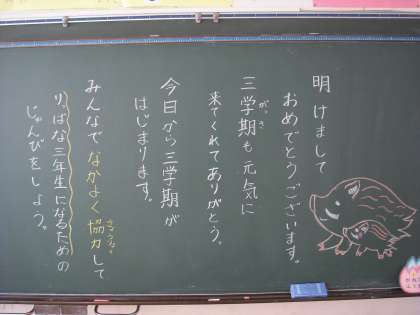 明けまして
おめでとうございます。
三学期も元気に
がっき
来てくれてありがとう。
今日から三学期が
はじまります。
みんなでなかよく協力して
きょうりょく
りっぱな三年生になるための
じゅんびをしよう。